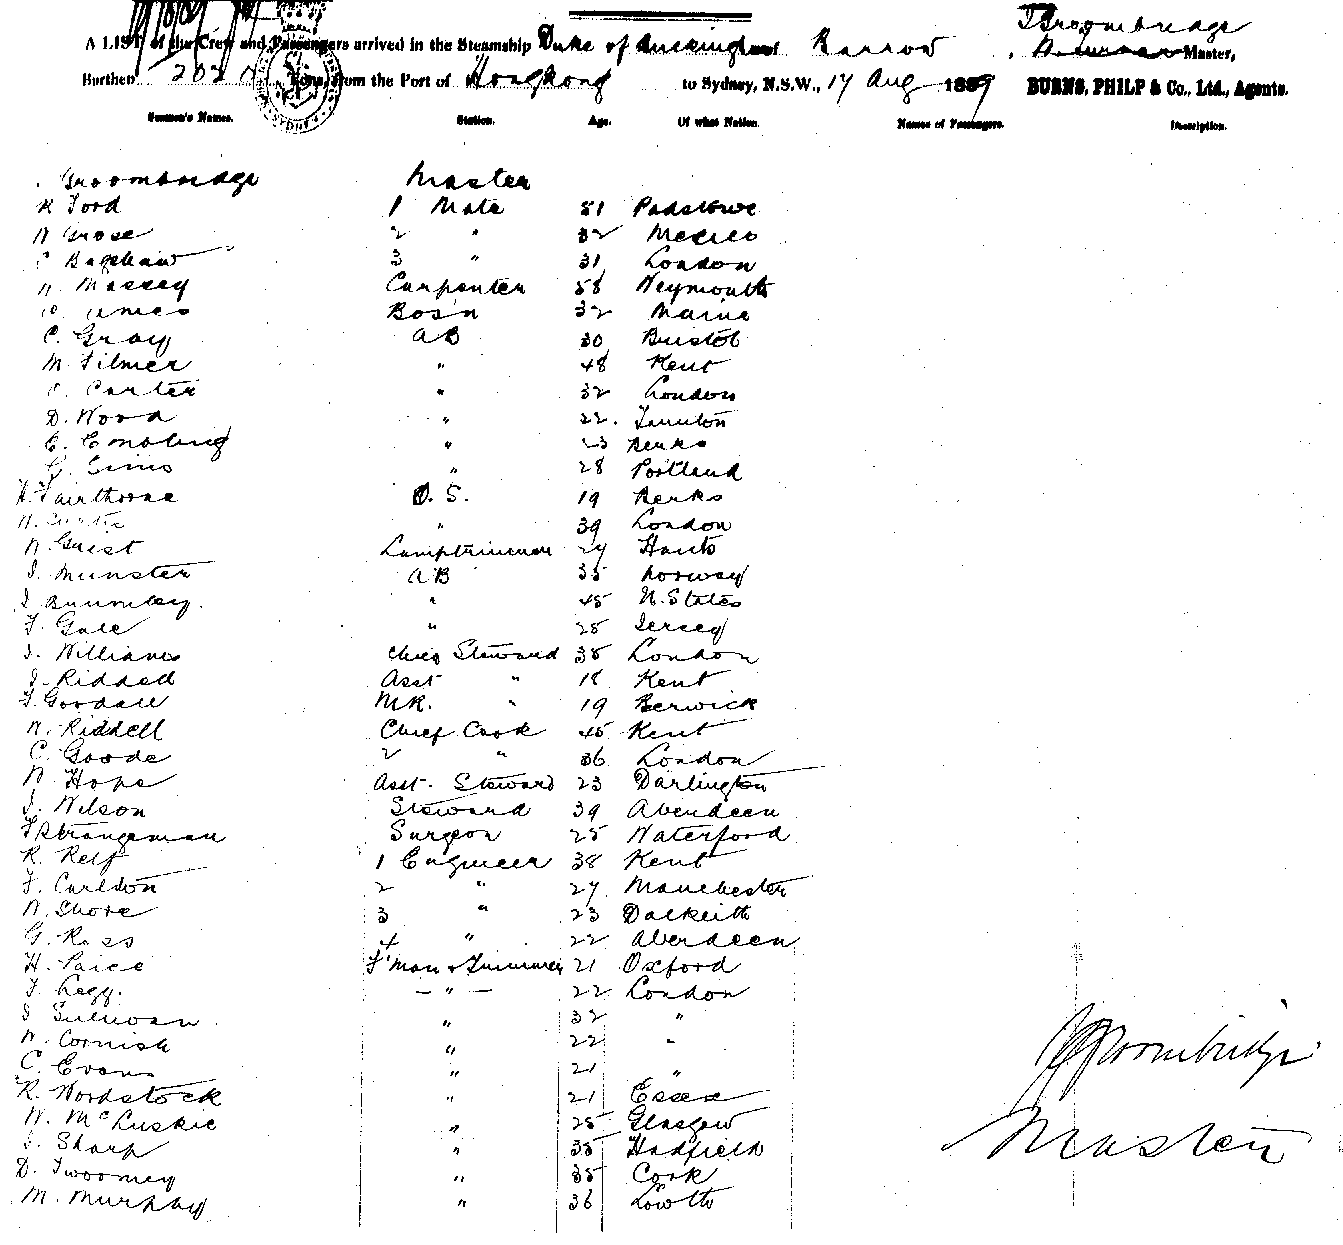 Groombridge
A LIST of the Crew and Passengers arrived in the Steamship Duke of Buckingham Barrow Master,
Burthen Tons, from the Port of Hongkong to Sydney, N.S.W., 17 Aug 1889 BURNS, PHILP & Co., Ltd., Agents.
Seamen's Names. Station. Age. Of what Nation. Names of Passengers. Description.
Groombridge Master
R Ford 1 Mate 51 Padstowe
W Grose 2 " 32 Mexico
C Bagshaw 3 " 31 London
H. Massey Carpenter 58 Weymouth
James Bos'n 32 Maine
C. Gray AB 30 Bristol
M. Filmer " 48 Kent
C. Carter " 32 London
D. Wood " 22. Taunton
E. Embling " 23 Berks
G. Sims " 28 Portland
H. Fairthorne O. S. 19 Berks
W. Curtis " 39 London
W. Guist Lamptrimmer 27 Hants
J. Munster AB 35 Norway
J Brumley. " 45 U. States
F. Gale " 25 Jersey
J. Williams Chief Steward 38 London
J. Riddell Asst " 18 Kent
F. Goodall M.R. " 19 Berwick
W. Riddell Chief Cook 45 Kent
C. Goode 2 " 36 London
W. Hope Asst. Steward 23 Darlington
J. Wilson Steward 39 Aberdeen
F Strangeman Surgeon 25 Waterford
R. Relf 1 Engineer 38 Kent
F. Carlton 2 " 27 Manchester
W. Shore 3 " 23 Dalkeith
G. Ross 4 " 22 Aberdeen
H. Paice F'man & Trimmer 21 Oxford
F. Legg. — " — 22 London
J Sullivan " 32 "
W. Cornish " 22 "
C. Evans " 21 "
R. Woodstock " 21 Essex
W. McLuskie " 25 Glasgow
J. Sharp " 35 Hadfield
D. Twoomey " 35 Cork
M. Murphy " 36 Lowth
Groombridge
Master